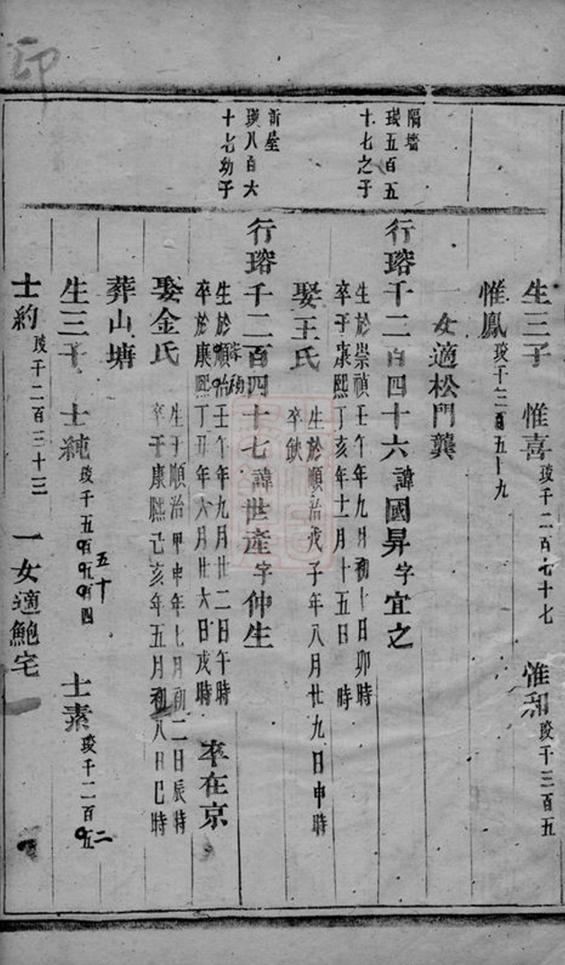 生三子 惟喜 琰千二百七十七 惟和 琰千三百五
惟鳳 琰千三百五十九
一女適松門龔
隔墻
琰五百五
十七之子
行瑢千二百四十六諱國昇字宜之
生於崇禎壬午年九月初十日卯時
卒于康熙丁亥年十一月十五日 時
娶王氏
生於順治戊子年八月廿九日申時
卒缺
新屋
琰八百六
十七幼子
行瑢千二百四十七諱世產字仲生
生於順治壬午年九月廿二日午時
崇禎
卒於康熙丁丑年六月廿六日戌時
卒在京
娶金氏
生于順治甲申年七月初二日辰時
卒于康熙己亥年五月初八日巳時
葬山塘
生三子 士純 琰千五百九百四 五十 士素 琰千二百五 二
士約 琰千二百三十三 一女適鮑宅
印